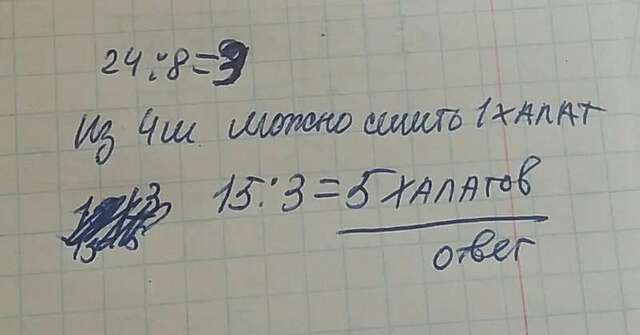 24:8=3
Из 4м. можно сшить 1 халат
15:3=5 халатов
ответ